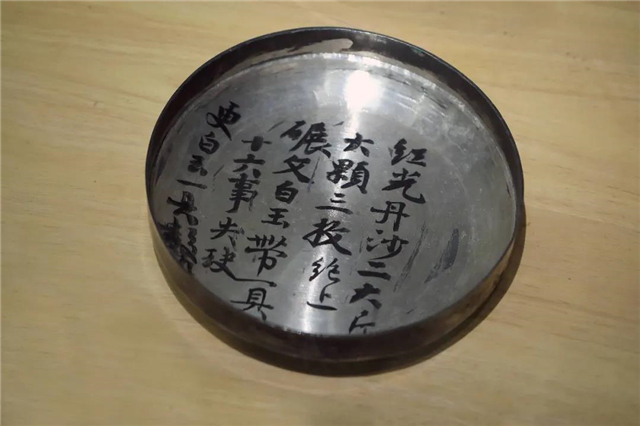 紅光丹沙二大斤
大顆三枚絶上
碾文白玉帶一具
十六事失玦
更白玉一